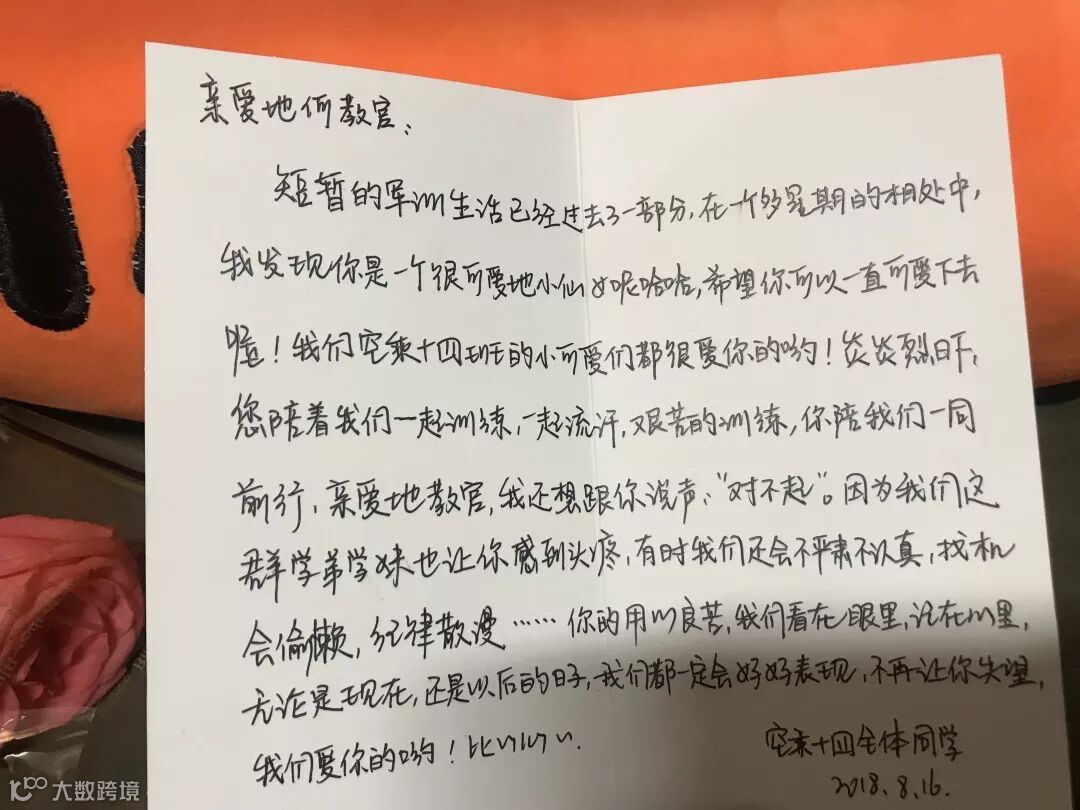 亲爱地何教官：
短暂的军训生活已经过去了一部分，在一个多星期的相处中，
我发现你是一个很可爱地小仙女呢哈哈，希望你可以一直可爱下去
啦！我们空乘十四班的小可爱们都很爱你的哟！炎炎烈日下，
您陪着我们一起训练，一起流汗，艰苦的训练，你陪我们一同
前行，亲爱地教官，我还想跟你说声：“对不起”。因为我们这
群学弟学妹也让你感到头疼，有时我们还会不严肃不认真，找机
会偷懒，纪律散漫……你的用心良苦，我们看在眼里，记在心里，
无论是现在，还是以后的日子，我们都一定会好好表现，不再让你失望，
我们爱你的哟！比心心心.
空乘十四全体同学
2018.8.16.
大数跨境